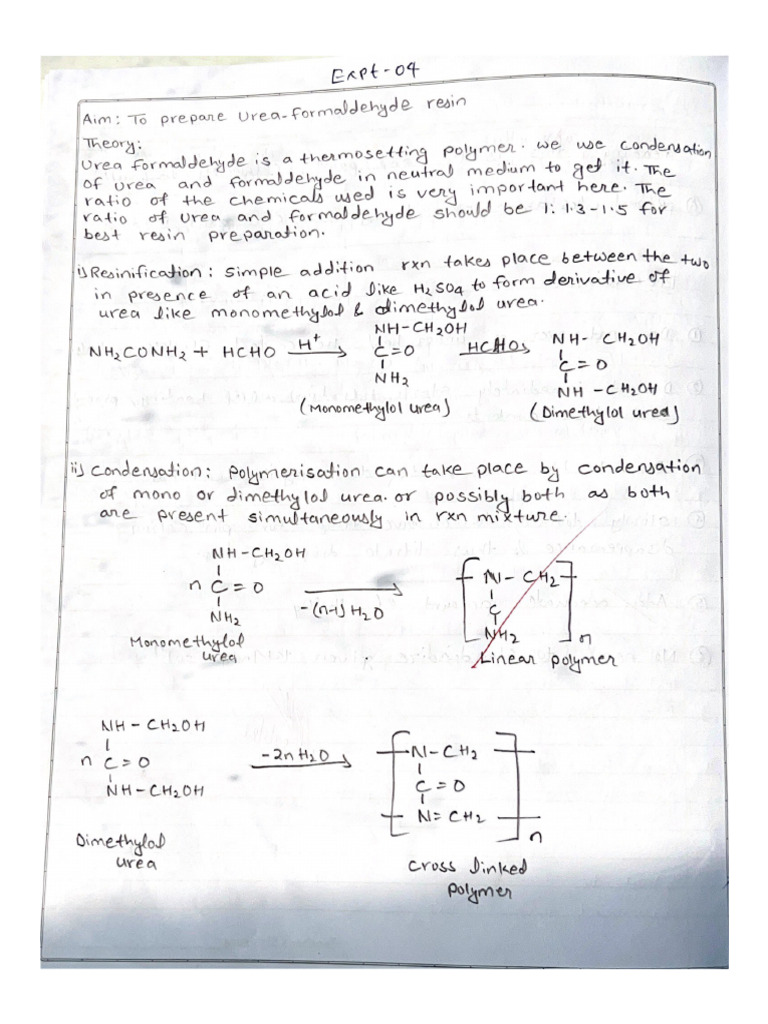 Expt-04
Aim: To prepare Urea-formaldehyde resin
Theory:
Urea formaldehyde is a thermosetting polymer. we use condensation
of urea and formaldehyde in neutral medium to get it. The
ratio of the chemicals used is very important here. The
ratio of urea and formaldehyde should be 1: 1.3-1.5 for
best resin preparation.
i) Resinification: simple addition rxn takes place between the two
in presence of an acid like H2SO4 to form derivative of
urea like monomethylol & dimethylol urea.
NH-CH2OH NH-CH2OH
NH2CONH2 + HCHO H+ C=O HCHO C=O
NH2 NH-CH2OH
(Monomethylol urea) (Dimethylol urea)
ii) Condensation: Polymerisation can take place by condensation
of mono or dimethylol urea. or possibly both as both
are present simultaneously in rxn mixture.
NH-CH2OH N-CH2
n C=O -(n-1)H2O C
NH2 NH2 n
Monomethylol Linear polymer
urea
NH-CH2OH N-CH2
n C=O -2nH2O C=O
NH-CH2OH N=CH2
n
Dimethylol cross linked
urea polymer